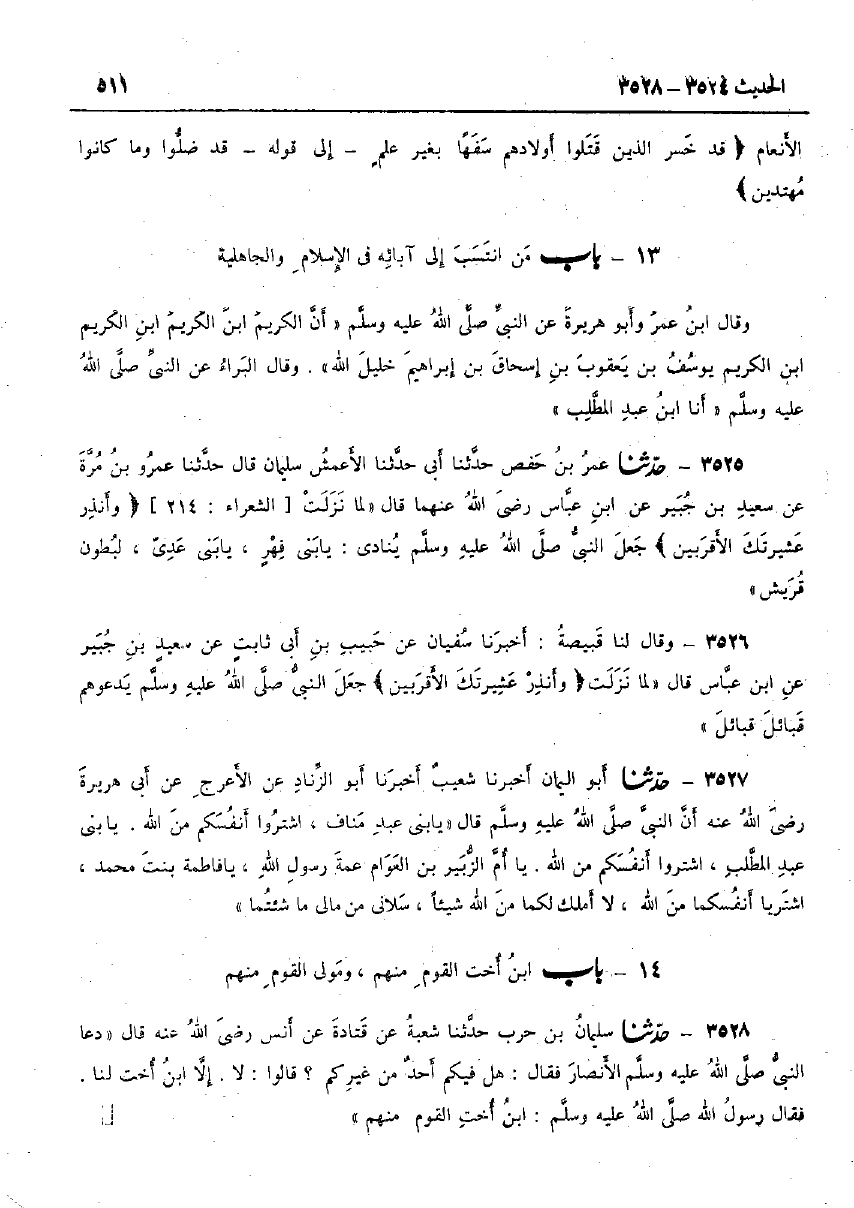 الحديث ٣٥٢٤ – ٣٥٢٨ ٥١١
الأنعام ﴿ قد خَسر الذين قَتَلوا أولادهم سَفَهًا بغير علمٍ – إلى قوله – قد ضلُّوا وما كانوا
مُهتدين ﴾
١٣ – باب مَن انتَسَبَ إلى آبائِه فى الإسلامِ والجاهلية
وقال ابنُ عمرَ وأبو هريرةَ عن النبىِّ صلَّى اللهُ عليه وسلَّم « أنَّ الكريمَ ابنَ الكريمَ ابنِ الكريم
ابنِ الكريم يوسُفُ بن يَعقوبَ بنِ إسحاقَ بن إبراهيمَ خليلَ الله» . وقال البَراءُ عن النبىِّ صلَّى اللهُ
عليه وسلَّم « أنا ابنُ عبدِ المطَّلِب »
٣٥٢٥ – حدّثنا عمرُ بنُ حَفص حدَّثنا أبى حدَّثنا الأعمشُ سليمان قال حدَّثنا عمرُو بنُ مُرَّةَ
عن سعيدِ بن جُبَير عن ابنِ عبَّاس رضىَ اللهُ عنهما قال «لما نَزَلَتْ [ الشعراء : ٢١٤ ] ﴿ وأنذِر
عَشيرتَكَ الأقرَبين ﴾ جَعلَ النبىُّ صلَّى اللهُ عليهِ وسلَّم يُنادى : يابَنى فِهْرٍ ، يابَنى عَدِىّ ، لبُطون
قُرَيش»
٣٥٢٦ – وقال لنا قَبيصةُ : أخبرَنا سُفيان عن حَبيبِ بنِ أبى ثابتٍ عن سعيدِ بنِ جُبَير
عنِ ابن عبَّاس قال «لما نَزَلَت ﴿ وأنذِرْ عَشيرتَكَ الأقرَبين ﴾ جعَلَ النبىُّ صلَّى اللهُ عليهِ وسلَّم يَدعوهم
قَبائلَ قبائلَ »
٣٥٢٧ – حدّثنا أبو اليمان أخبرنا شعيبٌ أخبرَنا أبو الزِّنادِ عن الأعرجِ عن أبى هريرةَ
رضىَ اللهُ عنه أنَّ النبىَّ صلَّى اللهُ عليهِ وسلَّم قال «يابنى عبدِ مَناف ، اشترُوا أنفُسَكم منَ الله . يا بنى
عبدِ المطَّلب ، اشتروا أنفُسَكم من الله . يا أمَّ الزُّبَير بن العَوَّام عمةَ رسولِ اللهِ ، يافاطمة بنتَ محمد ،
اشتَريا أنفسكما منَ الله ، لا أملك لكما منَ الله شيئاً ، سَلانى من مالى ما شئتُما »
١٤ – باب ابنُ أخت القومِ منهم ، ومَولى القومِ منهم
٣٥٢٨ – حدّثنا سليمانُ بن حرب حدَّثنا شعبةُ عن قَتادةَ عن أنس رضىَ اللهُ عنه قال «دعا
النبىُّ صلَّى اللهُ عليه وسلَّم الأنصارَ فقال : هل فيكم أحدٌ من غيرِكم ؟ قالوا : لا . إلَّا ابنُ أخت لنا .
فقال رسولُ الله صلَّى اللهُ عليه وسلَّم : ابنُ أختِ القوم منهم »